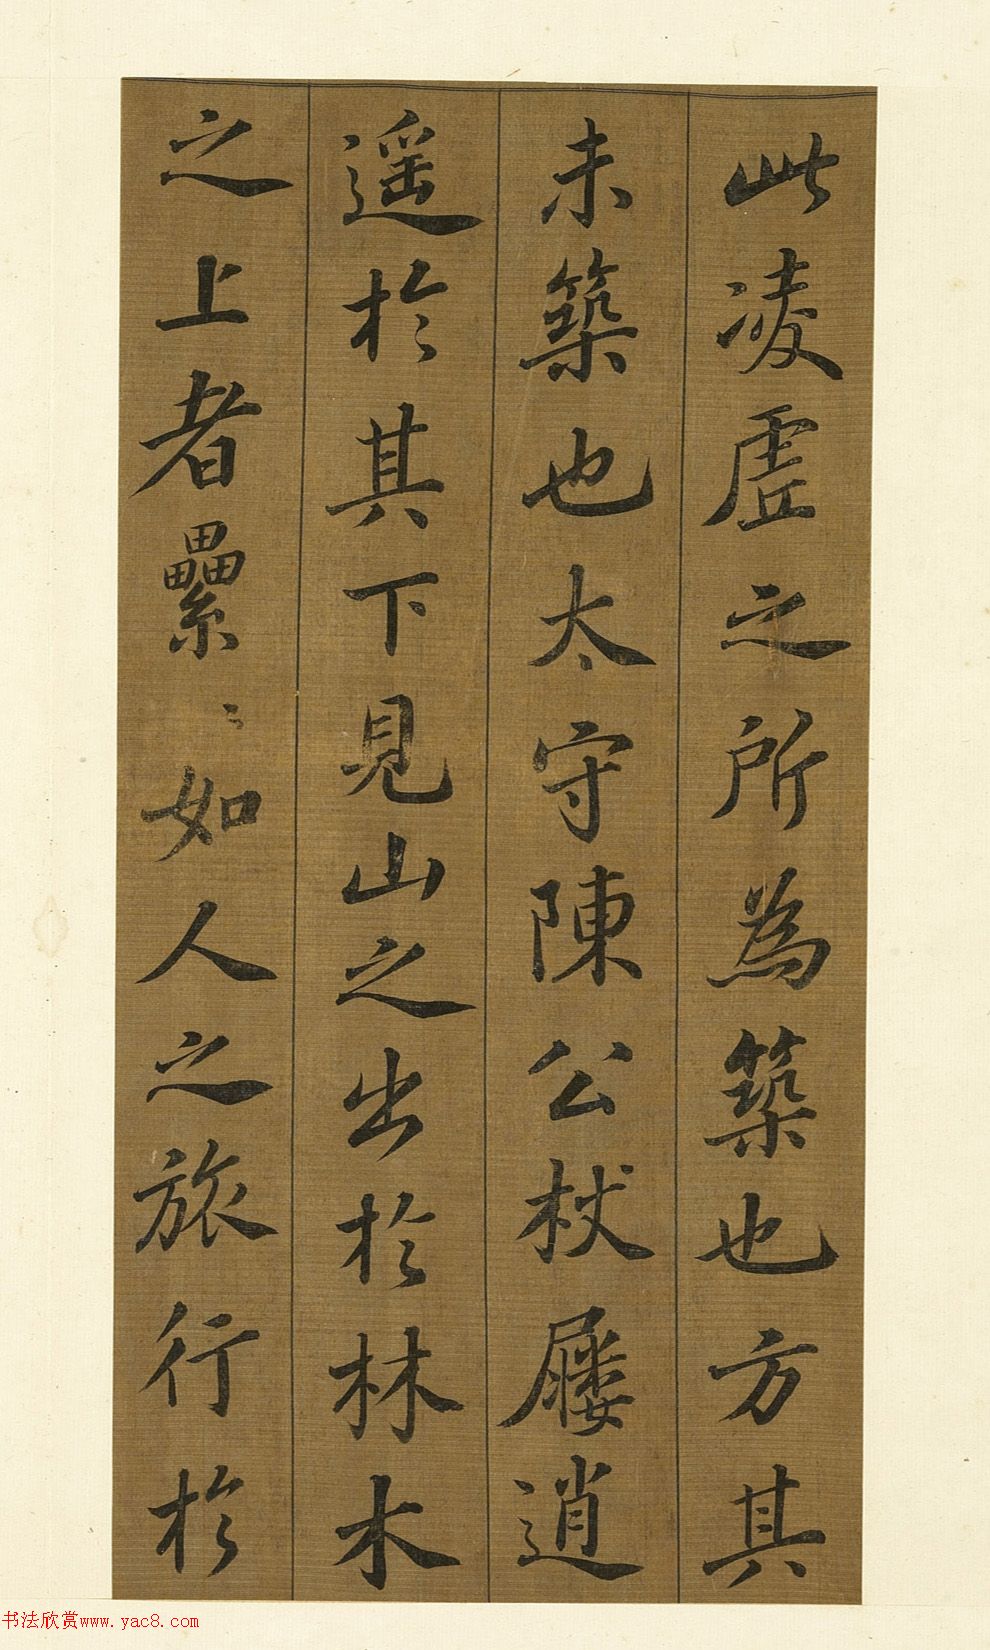 此凌虛之所為築也方其
未築也太守陳公杖屨逍
遥於其下見山之出於林木
之上者纍〻如人之旅行於
书法欣赏www.yac8.com